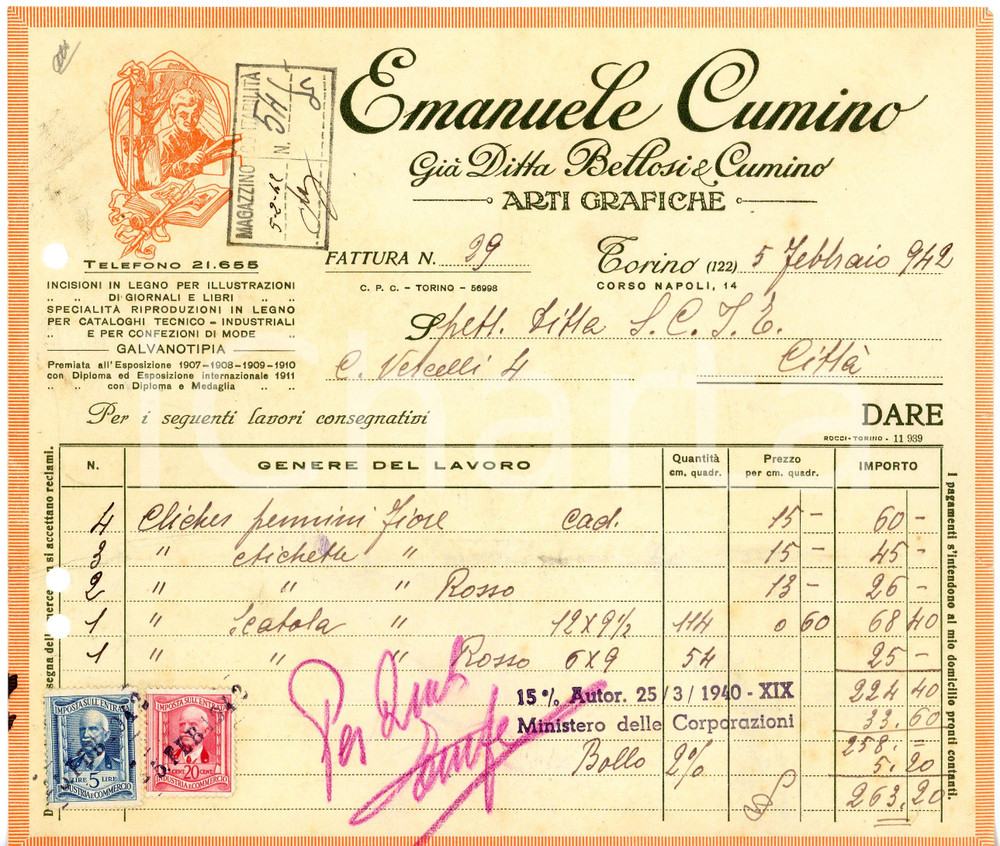 Emanuele Cumino
Già Ditta Bellosi & Cumino
ARTI GRAFICHE
MAGAZZINO CONTABILITÀ
5-2-42 N. 541
TELEFONO 21.655
INCISIONI IN LEGNO PER ILLUSTRAZIONI
„ „ DI GIORNALI E LIBRI „ „
SPECIALITÀ RIPRODUZIONI IN LEGNO
PER CATALOGHI TECNICO - INDUSTRIALI
„ E PER CONFEZIONI DI MODE „
GALVANOTIPIA
Premiata all'Esposizione 1907-1908-1909-1910
con Diploma ed Esposizione internazionale 1911
„ „ con Diploma e Medaglia „ „
FATTURA N. 29
C. P. C. - TORINO - 56998
Torino (122) 5 Febbraio 942
CORSO NAPOLI, 14
Spett. Ditta S.C.I.E.
C. Vercelli 4 Città
Per i seguenti lavori consegnativi
DARE
ROCCI-TORINO - 11 939
iCharta
N. GENERE DEL LAVORO Quantità cm. quadr. Prezzo per cm. quadr. IMPORTO
4 Cliches pennini Fiore cad. 15 - 60 -
3 " etichetta " 15 - 45 -
2 " " " Rosso 13 - 26 -
1 " Scatola " 12 x 9 1/2 114 0 60 68 40
1 " " " Rosso 6x9 54 25 -
224 40
15 % Autor. 25/3/1940 - XIX
Ministero delle Corporazioni
33.60
258.-
Bollo 2% 5.20
263.20
Per
si accettano reclami.
I pagamenti s'intendono al mio domicilio pronti contanti.
IMPOSTA SULL'ENTRATA
LIRE 5 LIRE
INDUSTRIA E COMMERCIO
IMPOSTA SULL'ENTRATA
CENT. 20 CENT.
INDUSTRIA E COMMERCIO